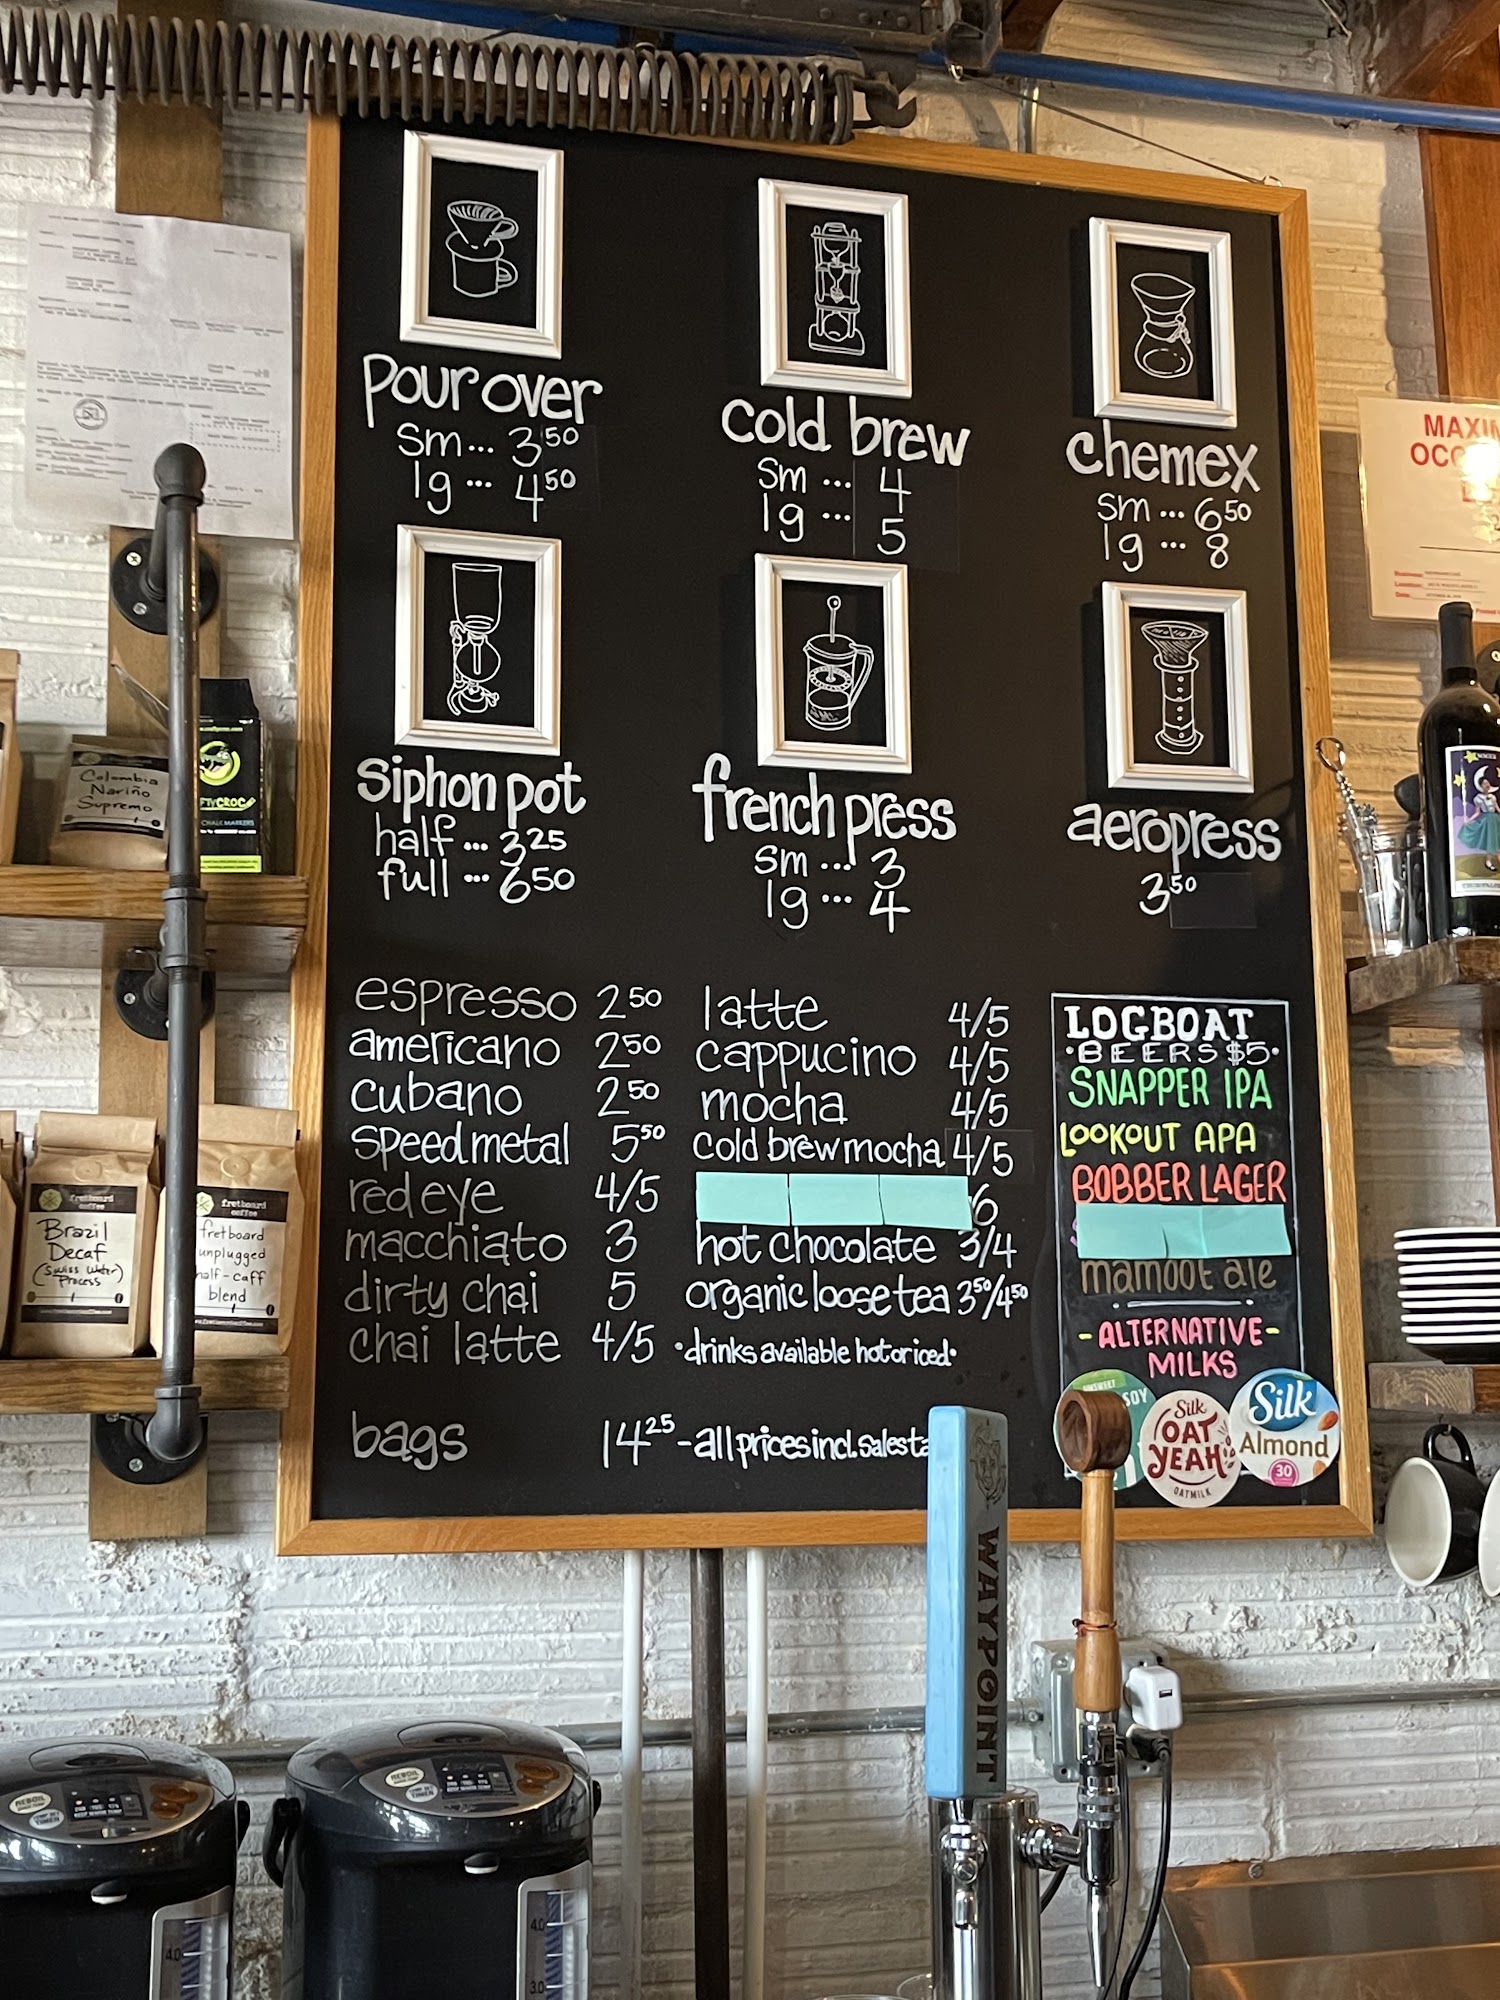 pour over
sm... 3 50
lg ... 4 50
cold brew
sm ... 4
lg ... 5
chemex
sm ... 6 50
lg ... 8
siphon pot
half ... 3 25
full ... 6 50
french press
sm ... 3
lg ... 4
aeropress
3 50
espresso 2 50
americano 2 50
cubano 2 50
speed metal 5 50
red eye 4/5
macchiato 3
dirty chai 5
chai latte 4/5
latte 4/5
cappucino 4/5
mocha 4/5
cold brew mocha 4/5
6
hot chocolate 3/4
organic loose tea 3 50/4 50
•drinks available hot or iced•
bags 14 25 - all prices incl. sales ta
LOGBOAT
•BEERS $5•
SNAPPER IPA
LOOKOUT APA
BOBBER LAGER
mamoot ale
-ALTERNATIVE-
MILKS
UNSWEET
SOY
Silk
OAT
YEAH
OATMILK
Silk
Almond
30
WAYPOINT
Colombia
Nariño
Supremo
FTYCROC
CHALK MARKERS
fretboard
coffee
Brazil
Decaf
(Swiss Water)
Process
fretboard
coffee
fretboard
unplugged
half-caff
blend
MAXI
OCC
REBOIL
REBOIL
4.0
4.0
3.0